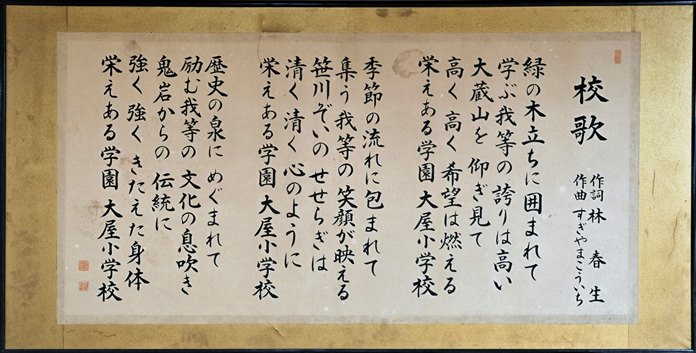 校歌
作詞 林 春生
作曲 すぎやまこういち
緑の木立ちに囲まれて
学ぶ我等の誇りは高い
大蔵山を 仰ぎ見て
高く 高く 希望は燃える
栄えある学園 大屋小学校
季節の流れに包まれて
集う我等の笑顔が映える
笹川ぞいの せせらぎは
清く 清く 心のように
栄えある学園 大屋小学校
歴史の泉に めぐまれて
励む我等の 文化の息吹き
鬼岩からの 伝統に
強く 強く きたえた身体
栄えある学園 大屋小学校